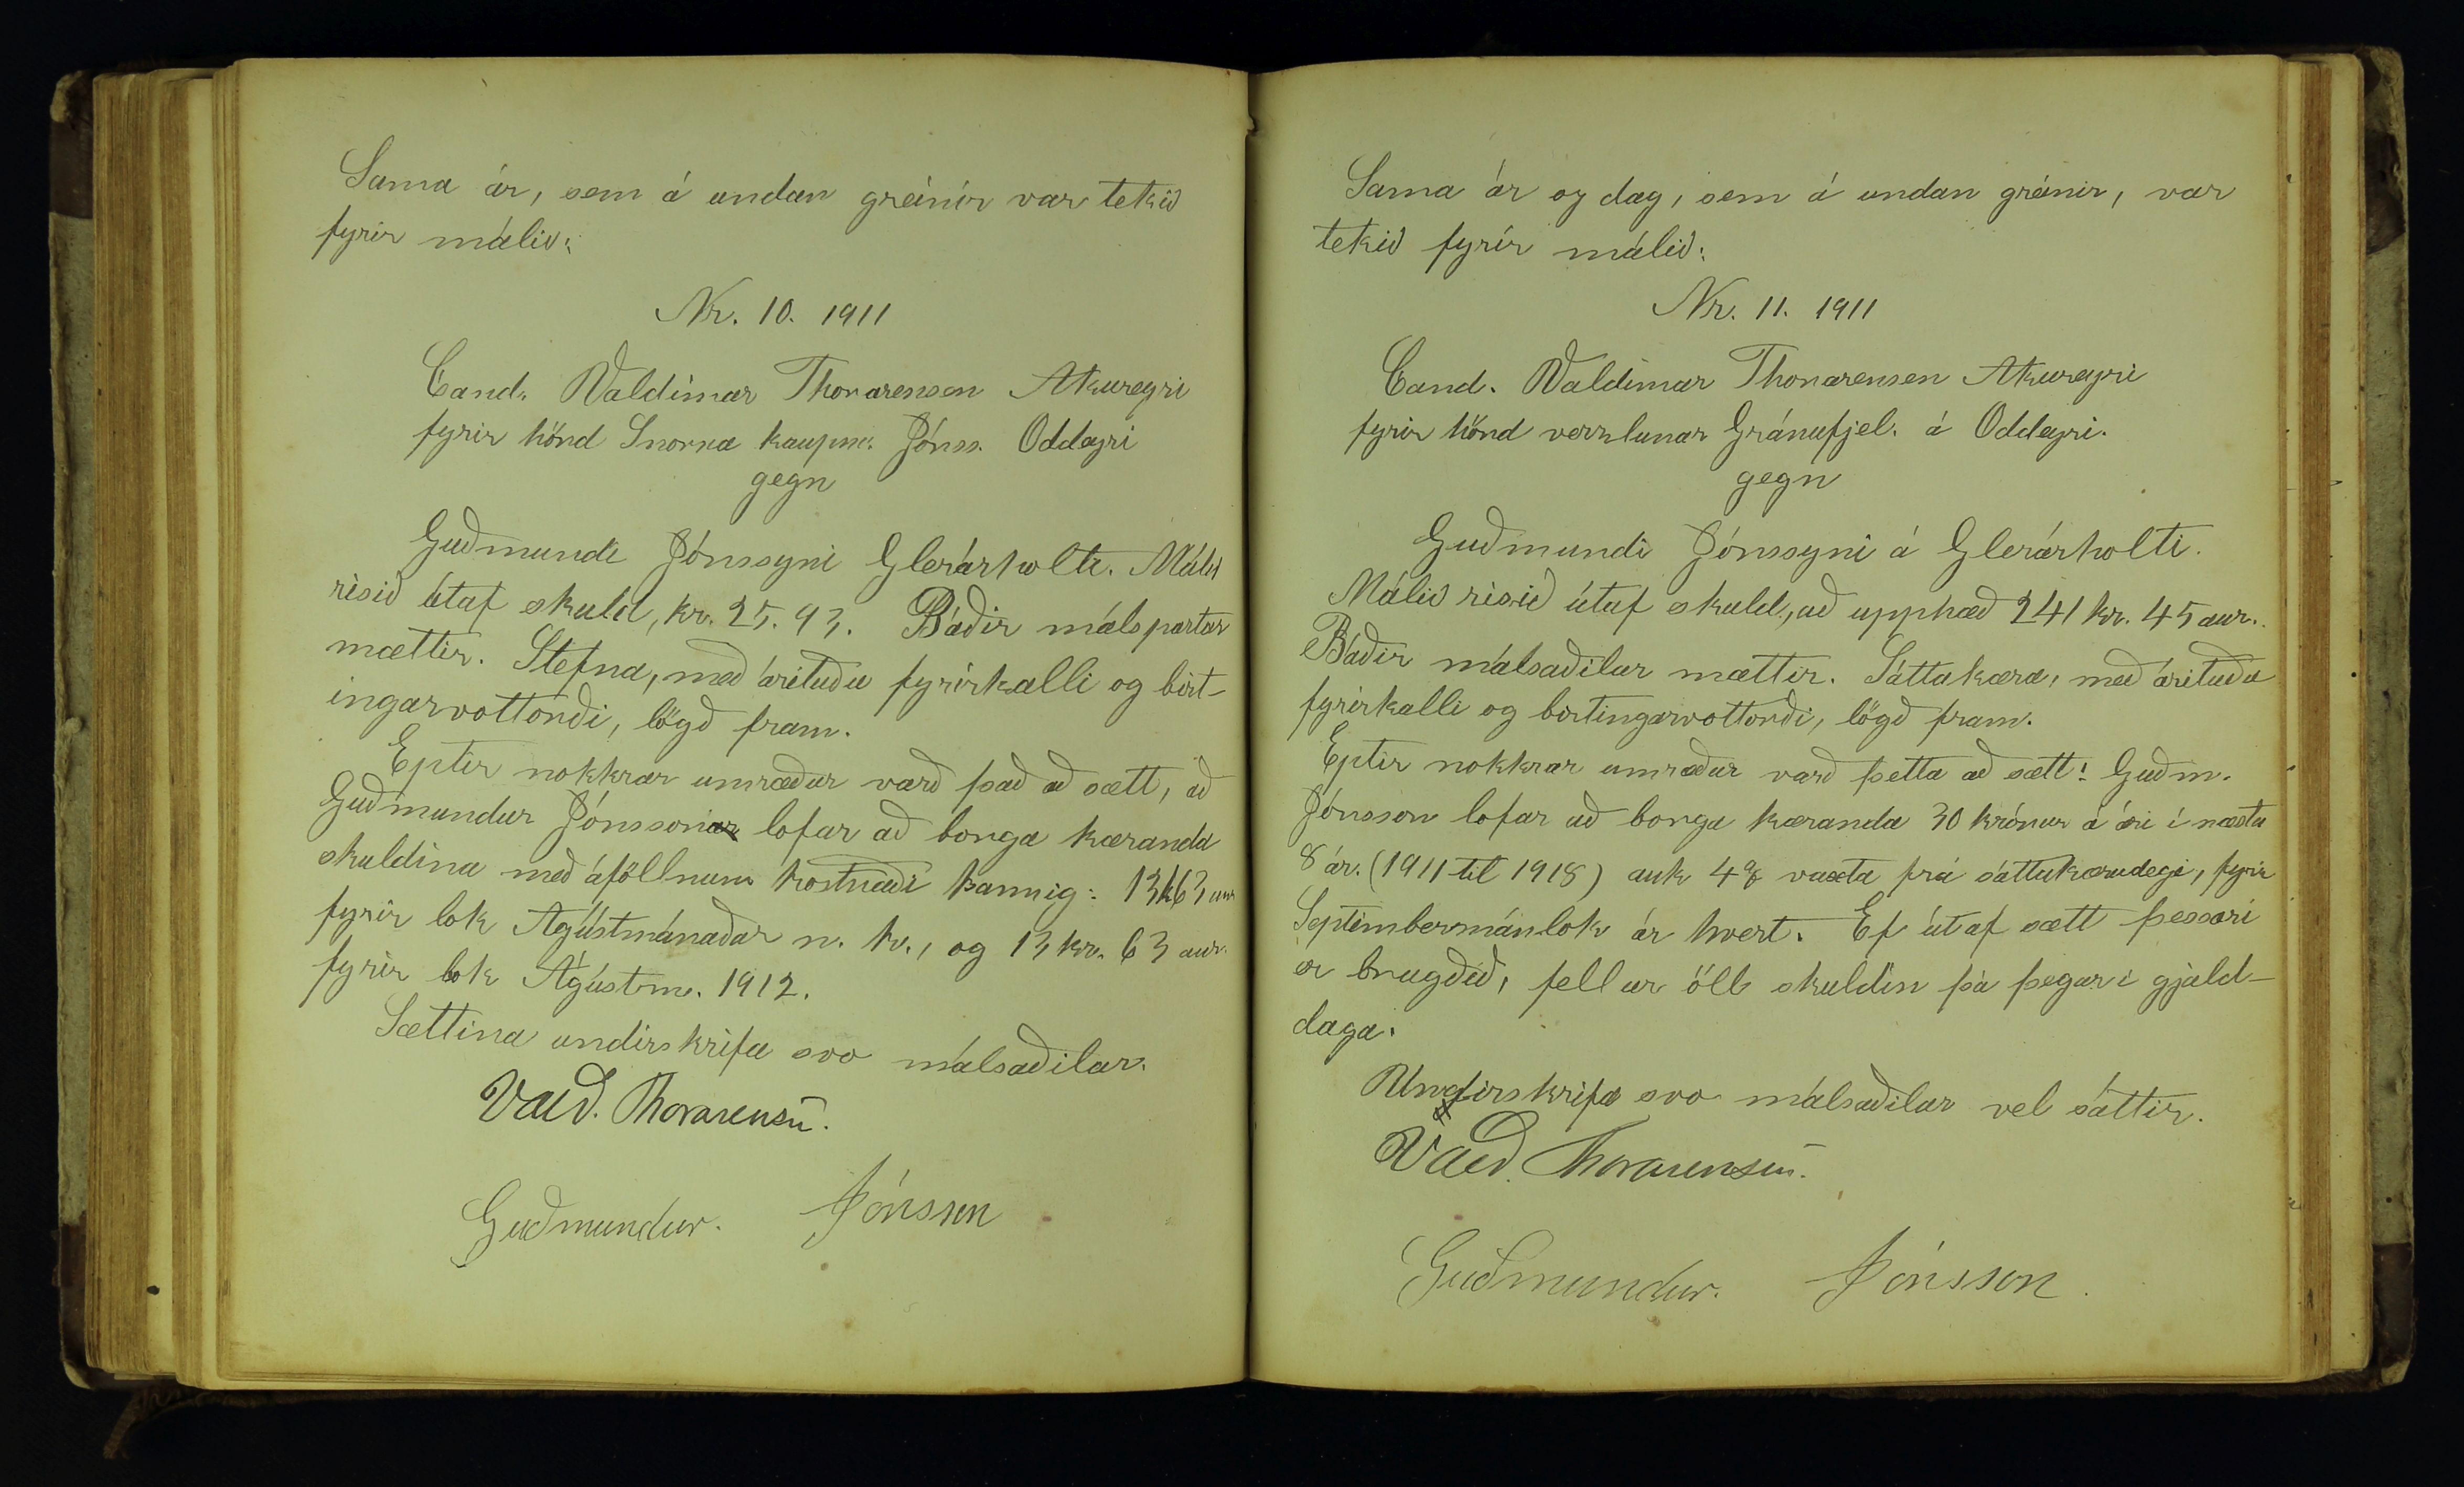 Sama ár, sem á undan greinir var tekið
fyrir málið:
Nr. 10. 1911
Cand. Valdimar Thorarensen Akureyri
fyrir hönd Snorra kaupm. Jónss. Oddeyri
gegn
Guðmundi Jónssyni Glerárholti. Málið
risið útaf skuld, kr. 25.93. Báðir málspartar
mættir. Stefna, með árituðu fyrirkalli og birt-
ingarvottorði, lögð fram.
Eptir nokkrar umræður varð það að sætt, að
Guðmundur Jónsson lofar að borga kæranda
skuldina með áföllnum kostnaði þannig: 13 k 63 aur
fyrir lok Ágústmánaðar n. kv., og 13 kr. 63 aur.
fyrir lok Ágústm. 1912.
Sættina undirskrifa svo málsaðilar.
Vald. Thorarensen.
Guðmundur. Jónsson
Sama ár og dag, sem á undan greinir, var
tekið fyrir málið:
Nr. 11. 1911
Cand. Valdimar Thorarensen Akureyri
fyrir hönd verzlunar Gránufjel. á Oddeyri.
gegn
Guðmundi Jónssyni á Glerárholti.
Málið risið útaf skuld, að upphæð 241 kr. 45 aur.
Báðir málsaðilar mættir. Sáttakæra, með árituðu
fyrirkalli og birtingarvottorði, lögð fram.
Eptir nokkrar umræður varð þetta að sætt: Guðm.
Jónsson lofar að borga kæranda 30 krónur á ári í næstu
8 ár. (1911 til 1918) auk 4% vaxta frá sáttakærudegi, fyrir
Septembermán lok ár hvert. Ef útaf sætt þessari
er brugðið, fellur öll skuldin þá þegar í gjald-
daga.
Undirskrifa svo málsaðilar vel sáttir.
Vald. Thorarensen.
Guðmundur. Jónsson.